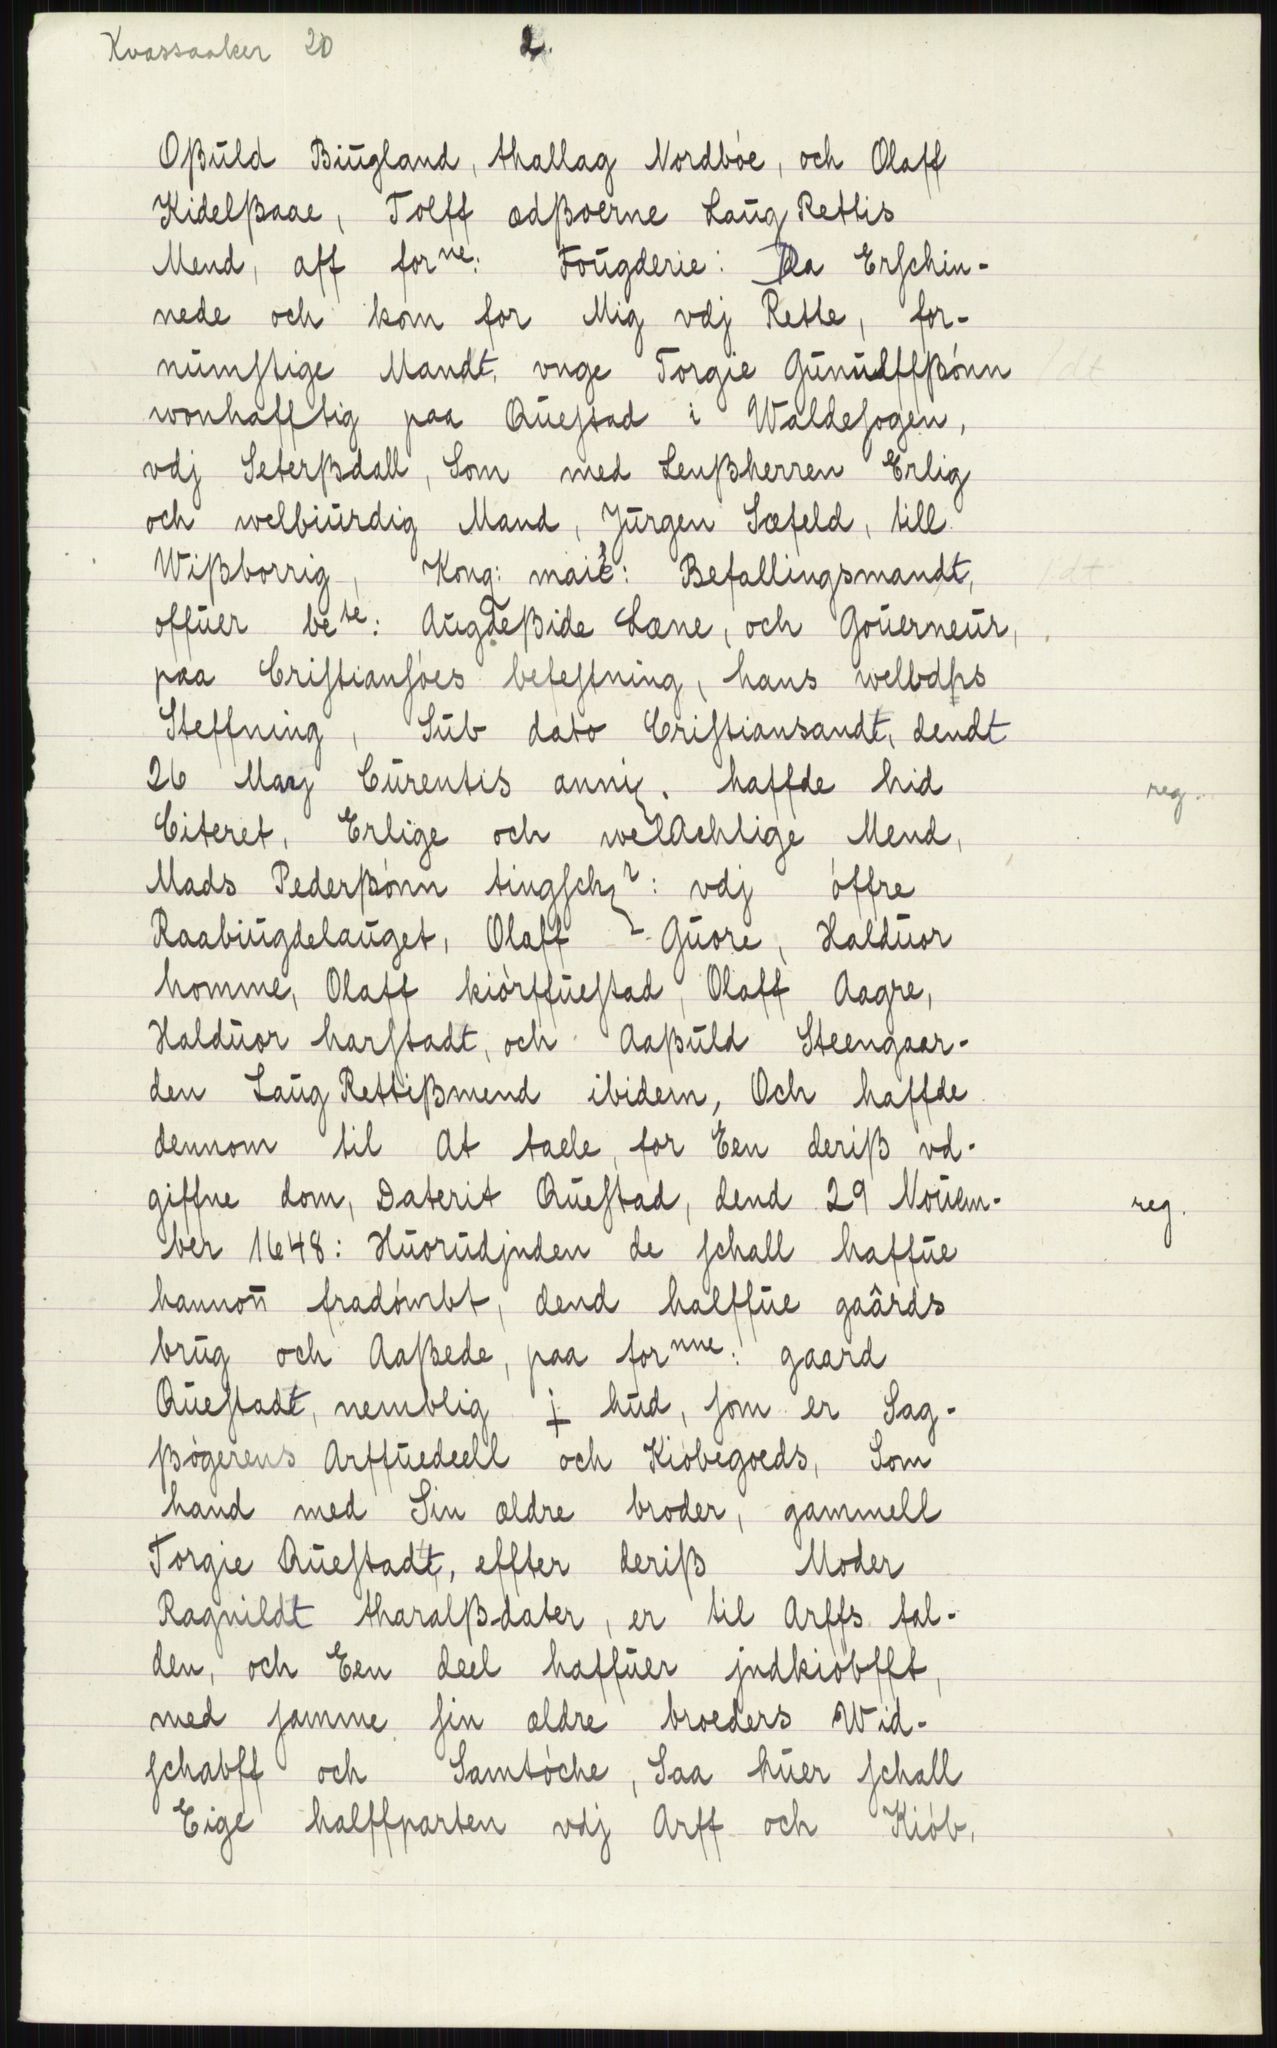 Kvassaaker 20 2.
Oßuld Biugland, thallag Nordbóe, och Olaff
Kidelßaae, Tolff ædßoerne Laug Rettis
Mend, aff forne: Fougderie: Da Erschin-
nede och kom for Mig vdj Rette, for-
numstige Mandt, vnge Torgie Gunulffßónn /dt
wonhafftig paa Questad i Waldesogen,
vdj Seterßdall, Som med Lenßherren Erlig
och welbiurdig Mand, Jurgen Sæfeld, till
Wißborrig, Kong: maie: Befallingsmandt, /dt
offuer bete: Augdeßide Læne, och Gouerneur,
paa Cristiansóes befestning, hans welbdßs
Steffning, Sub dato Cristiansandt, dendt
26 Maij Curentis anni, haffde hid reg.
Citeret, Erlige och welAchtige Mend,
Mads Pederßónn tingschr: vdj óffre
Raabiugdelauget, Olaff Guore, Halduor
homme, Olaff kiórffuestad, Olaff Aagre,
Halduor harstadt, och Aaßuld Steengaar-
den Laug Rettißmend ibidem, Och haffde
dennom til At taele, for Een deriß vd-
giffne dom, Daterit Questad, dend 29 Nouem- reg.
ber 1648: Huorudjnden de schall haffue
hannon̄ fradómbt, dend halffue gaârds
brug och Aaßede, paa fornne: gaard
Questadt, nemblig j hud, som er Sag-
ßógerens Arffuedeell och Kióbegoeds, Som
hand med Sin ældre broder, gammell
Torgie Questadt, effter deriß Moder
Ragnildt tharalßdater, er til Arffs fal-
den, och Een deel haffuer jndkióbfft,
med samme sin ældre broeders Wid-
schabff och Samtóche, Saa huer schall
Eige halffparten vdj Arff och Kiób,